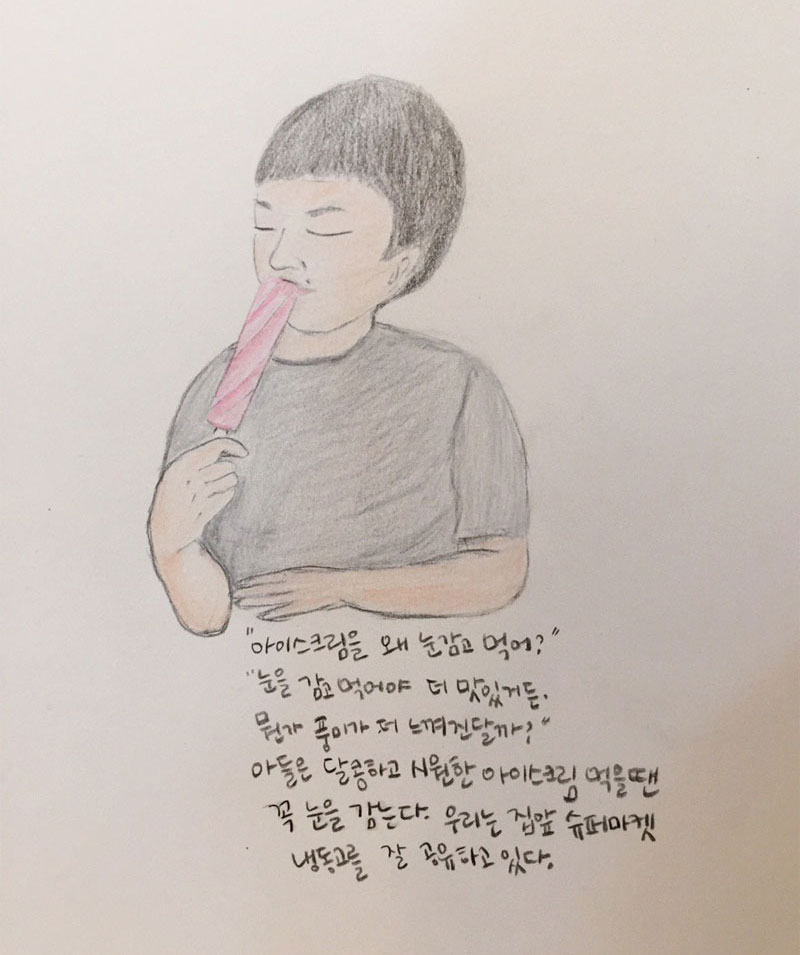 "아이스크림을 왜 눈감고 먹어?"
"눈을 감고 먹어야 더 맛있거든.
뭔가 풍미가 더 느껴진달까?"
아들은 달콤하고 시원한 아이스크림 먹을땐
꼭 눈을 감는다. 우리는 집앞 슈퍼마켓
냉동고를 잘 공유하고 있다.